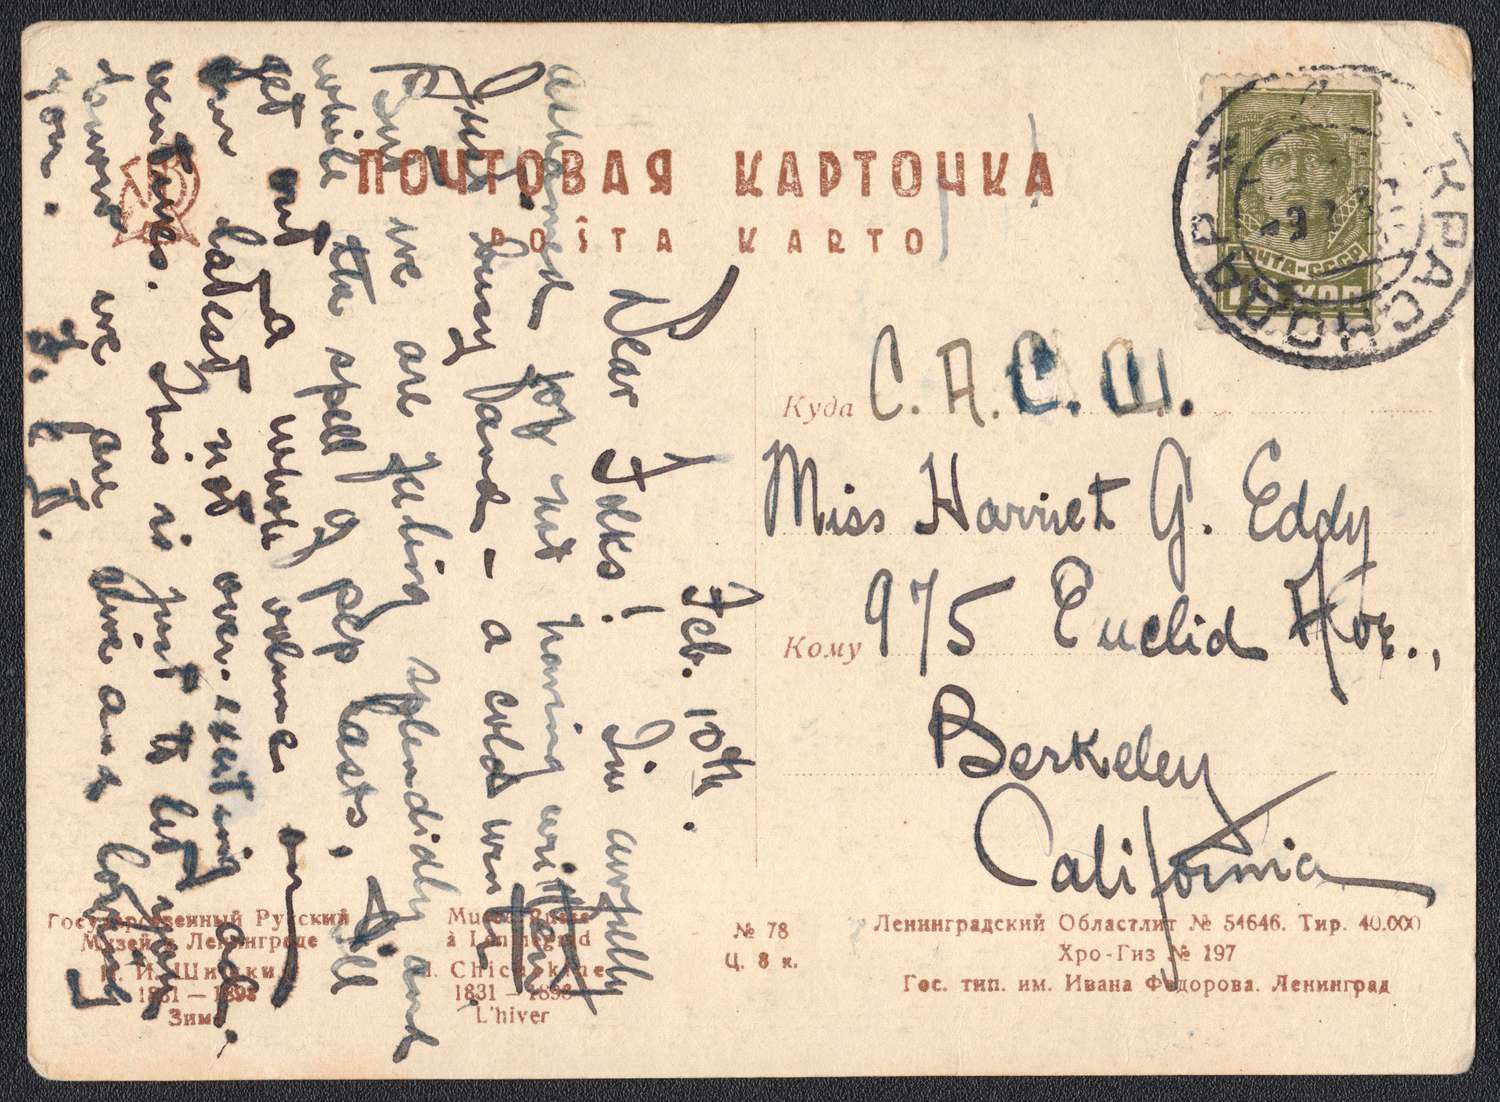 ПОЧТОВАЯ КАРТОЧКА
POŜTA KARTO
Feb. 10th.
Dear Folks! I'm awfully
ashamed for not having written
Just – a cold went
But we are feeling splendidly and
while the spell of pep lasts, I'll
get out a whole volume on
our latest not over-exciting ad-
ventures. This is just to let you
know we are alive and loving
you.
ПОЧТА-СССР
КОП
КРАСНОДАР
Куда С. А. С. Ш.
Miss Harriet G. Eddy
Кому 975 Euclid Ave.,
Berkeley
California
Государственный Русский
Музей в Ленинграде
И. И. Шишкин
1831 — 1898
Зима
Musée Russe
à Leningrad
I. Chichkine
1831 — 1898
L'hiver
№ 78
Ц. 8 к.
Ленинградский Областлит № 54646. Тир. 40.000
Хро-Гиз № 197
Гос. тип. им. Ивана Федорова. Ленинград